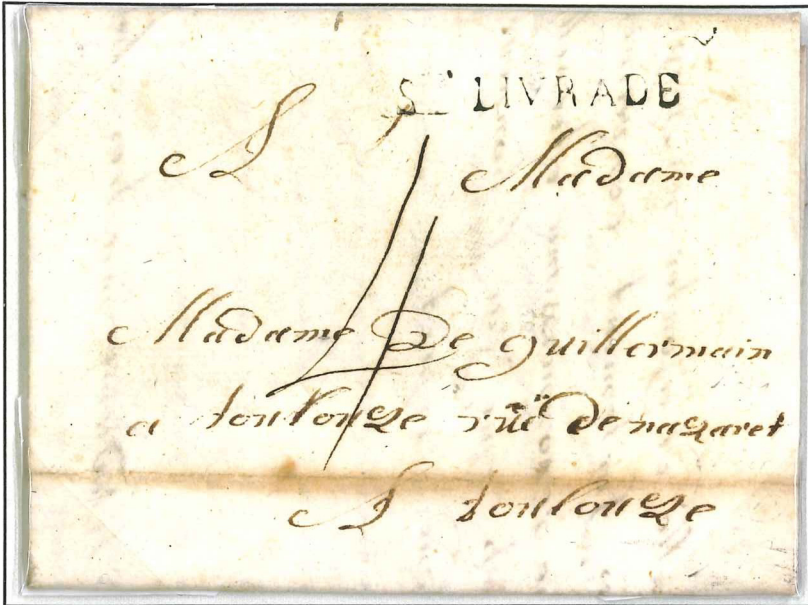 STE LIVRADE
A Madame
4
Madame De guillermain
a toulouze rüe De nazaret
A toulouze